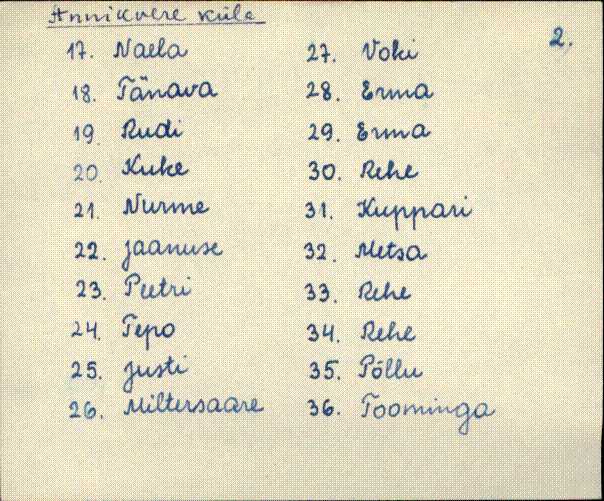 Annikvere küla
2.
17. Naela
18. Tänava
19. Rudi
20. Kuke
21. Nurme
22. Jaanuse
23. Peetri
24. Tepo
25. Justi
26. Miltersaare
27. Voki
28. Erma
29. Erma
30. Rehe
31. Kuppari
32. Metsa
33. Rehe
34. Rehe
35. Põllu
36. Toominga